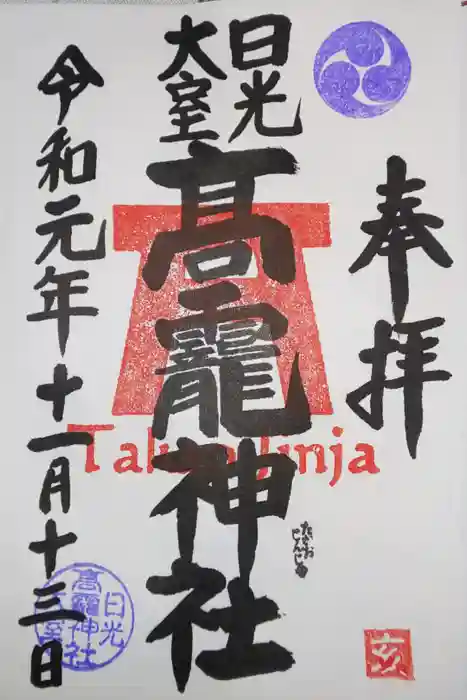 奉拝
日光
大室
髙龗神社
たかお
じんじゃ
Takao Jinja
令和元年十一月十三日
日光
髙龗神社
大室
亥